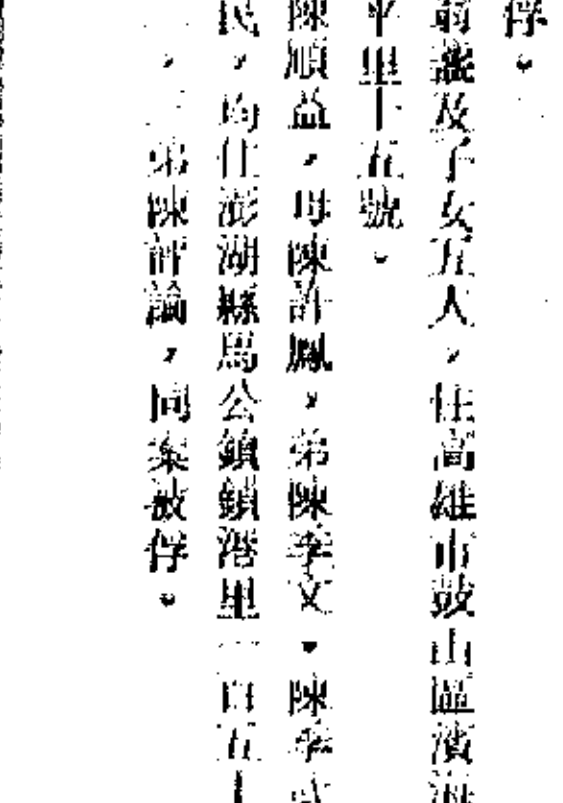 俘。
翁譤及子女五人,住高雄市鼓山區濱海
平里十五號。
陳順益,母陳許鳳,弟陳季文,陳季武
民,均住澎湖縣馬公鎮鎖港里一百五十
弟陳評論,同案被俘。